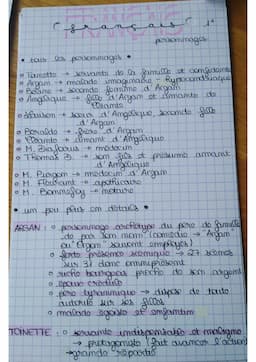 "français" 1ᵉ
FRANÇAIS
personnages
• tous les personnages •
• Toinette → servante de la famille et confidente
• Argan → malade imaginaire → hypocondriaque
• Béline → seconde femme d'Argan
• Angélique → fille d'Argan et amante de
Cléante
• Louison → sœur d'Angélique, seconde fille
d'Argan
• Béralde → frère d'Argan
• Cléante → amant d'Angélique
• M. Diafoirus → médecin
• Thomas D. → son fils et présumé amant
d'Angélique
• M. Purgon → médecin d'Argan
• M. Fleurant → apothicaire
• M. Bonnefoy → notaire
• un peu plus en détails •
ARGAN : • personnage archétype du père de famille
de par son nom (comédie → "Argan"
ou "Orgon" souvent employés)
• forte présence scénique → 27 scènes
sur 31 donc omniprésent
• riche bourgeois proche de son argent
• époux crédule
• père tyrannique → dispose de toute
autorité sur ses filles
• malade égoïste et enfantin
TOINETTE : • servante indispensable et maligne
→ protagoniste (fait avancer l'action)
→ grande répartie